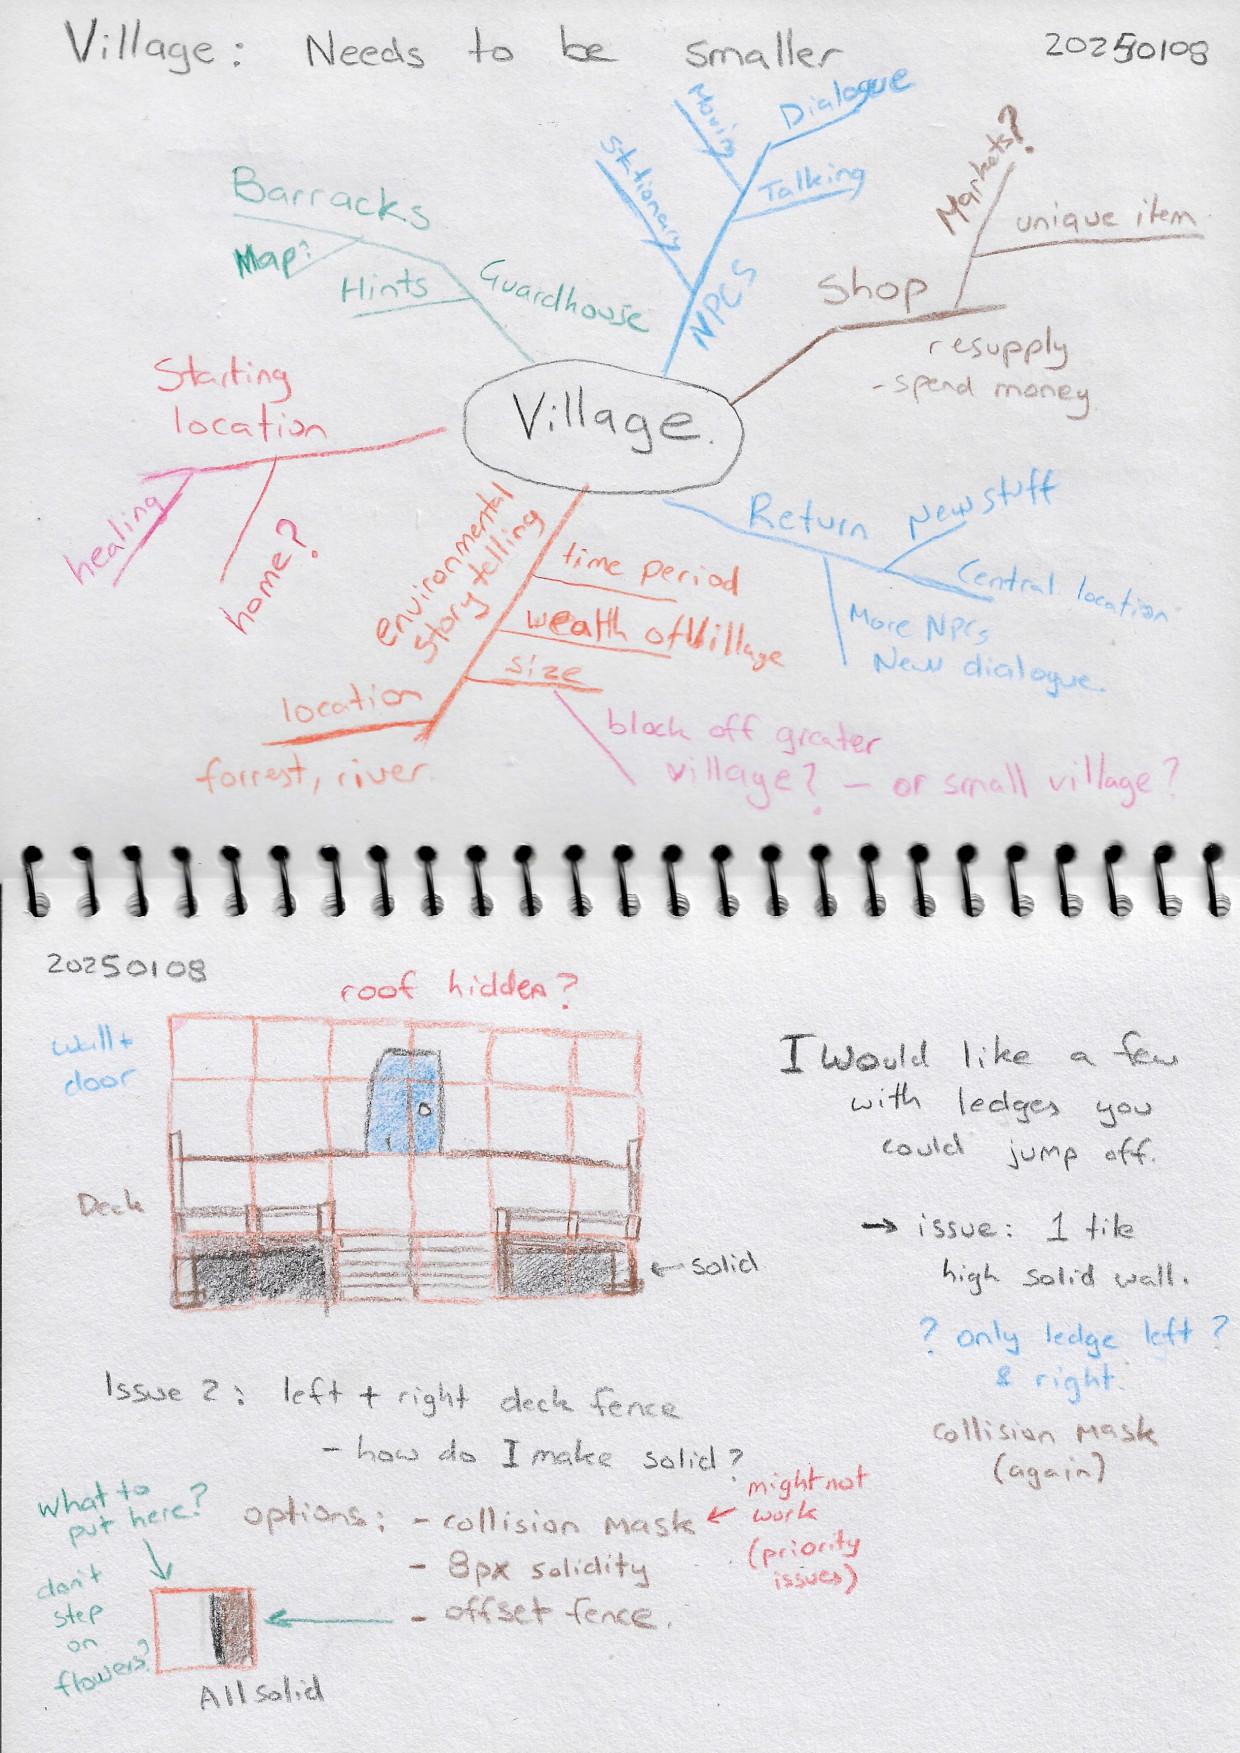 Village: Needs to be smaller
20250108
Barracks
Map?
Hints
Guardhouse
Stationary
Moving
Dialogue
Talking
NPCS
Markets?
unique item
Shop
resupply
- spend money
Starting
location
healing
home?
Village.
environmental
story telling
time period
wealth of Village
size
location
forrest, river.
block off greater
village? – or small village?
Return
New stuff
Central location
More NPCs
New dialogue.
20250108
roof hidden?
wall +
door
Deck
← solid
I Would like a few
with ledges you
could jump off.
→ issue: 1 tile
high solid wall.
? only ledge left ?
& right.
collision mask
(again)
Issue 2: left + right deck fence
- how do I make solid?
options: - collision mask ←
might not
work
(priority
issues)
- 8px solidity
- offset fence.
what to
put here?
don't
step
on
flowers?
All solid